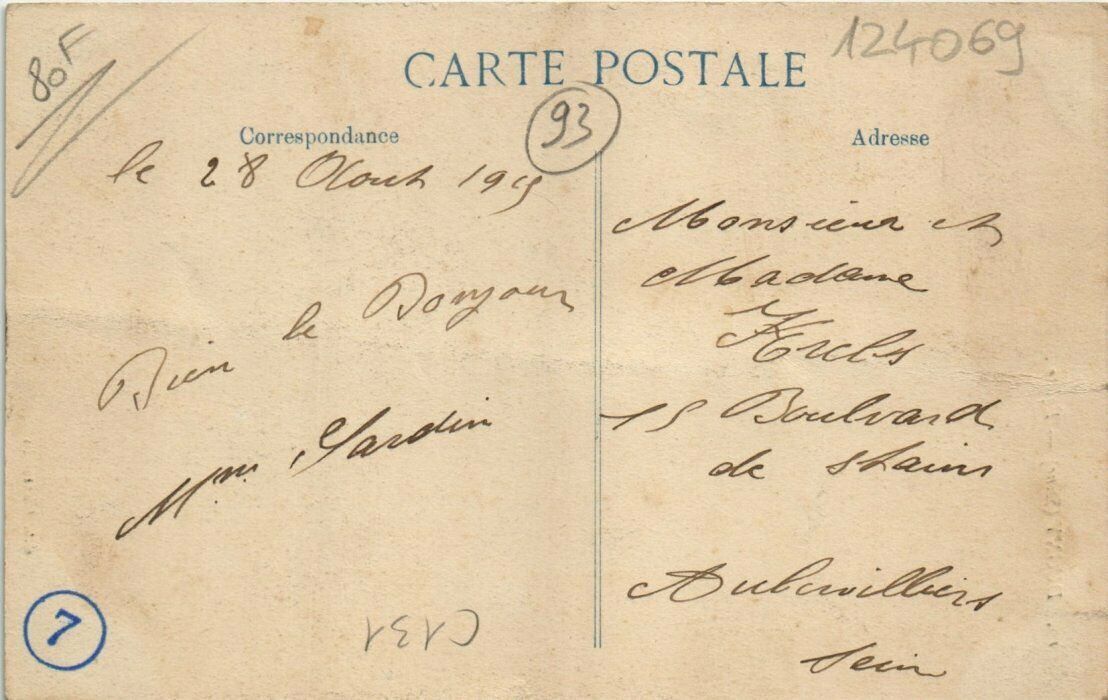 80F
124069
CARTE POSTALE
93
Correspondance
le 28 Aout 1915
Bien le Bonjour
Mme Jardin
7
C131
Adresse
Monsieur et
Madame
Krebs
15 Boulvard
de Stains
Aubervilliers
Seine